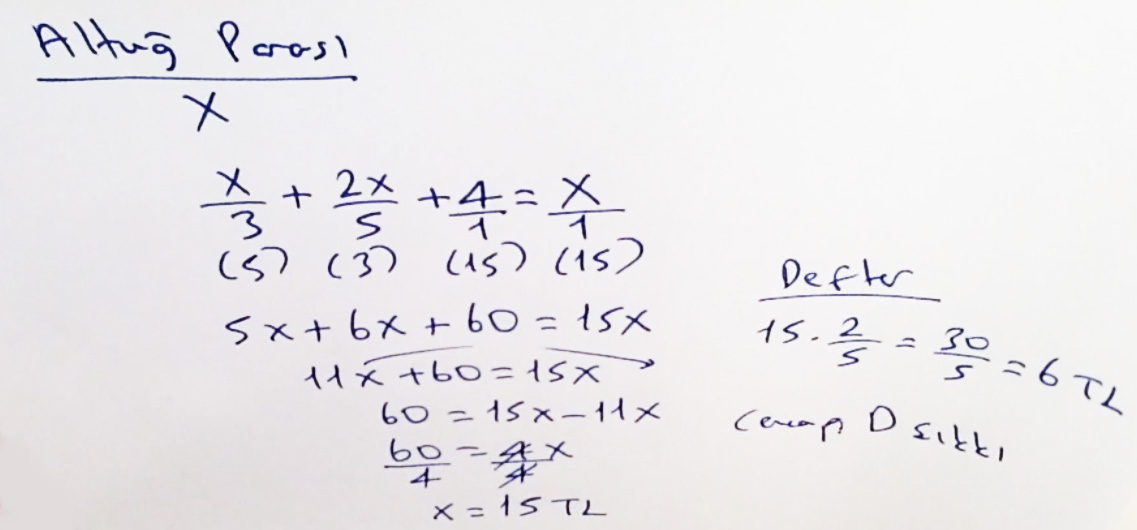 Altuğ Parası
x
x/3 + 2x/5 + 4/1 = x/1
(5) (3) (15) (15)
5x + 6x + 60 = 15x
11x + 60 = 15x
60 = 15x - 11x
60/4 = 4x/4
x = 15 TL
Defter
15 . 2/5 = 30/5 = 6 TL
Cevap D şıkkı